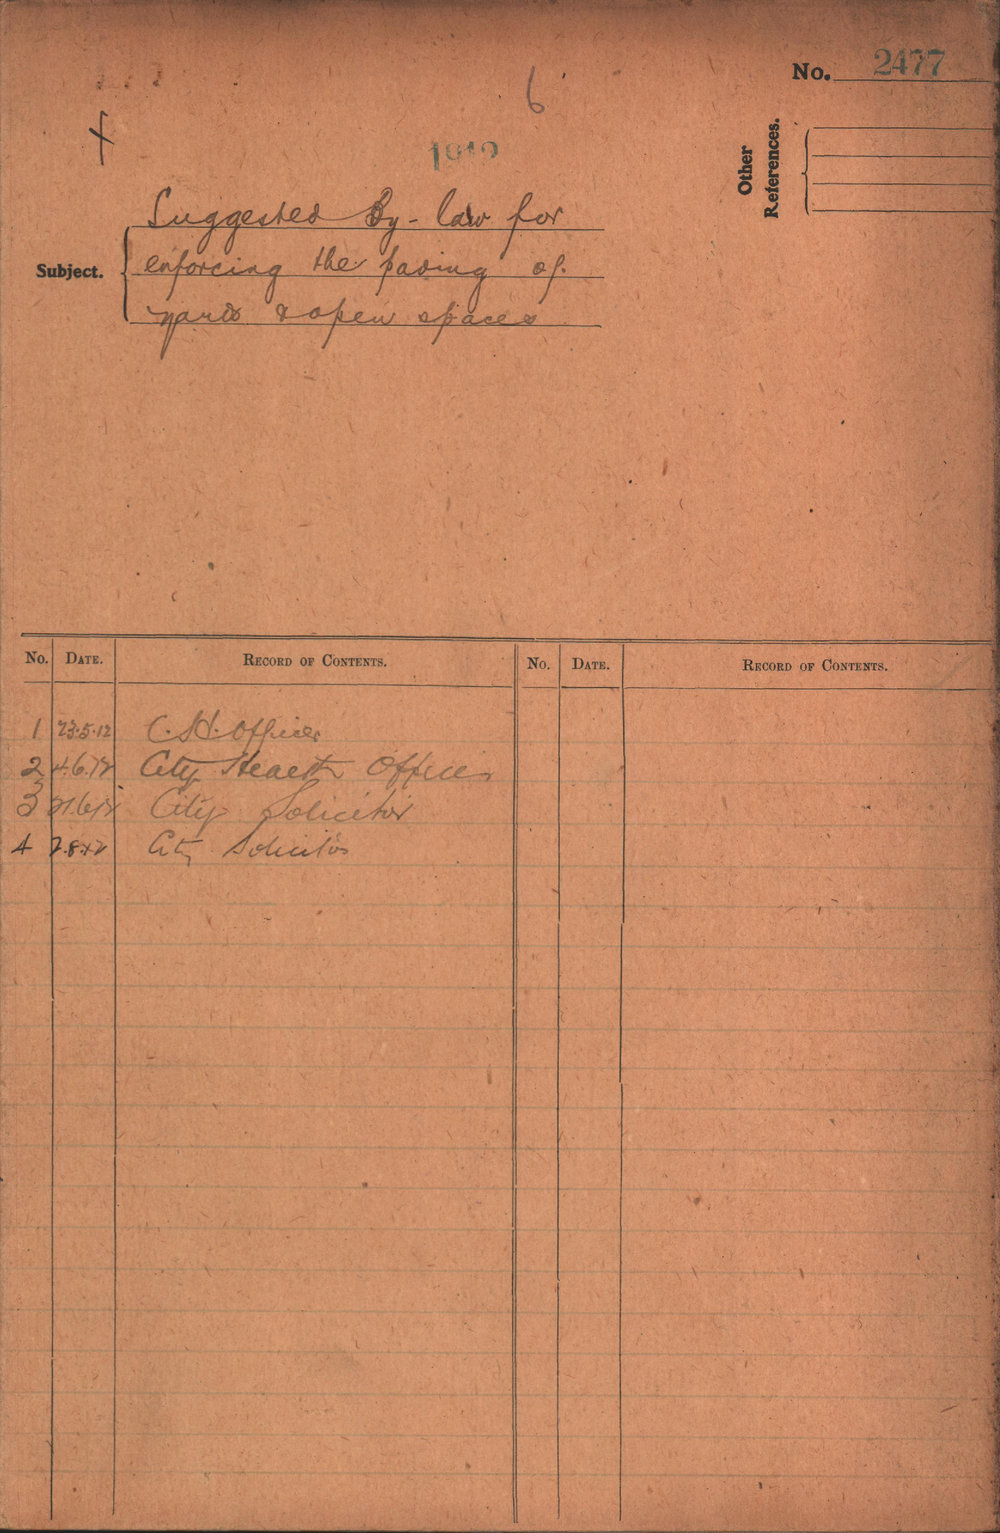 No. 2477
6
1912
Other
References.
Subject.
Suggested By-law for
enforcing the paving of
yards & open spaces
No. DATE. RECORD OF CONTENTS. No. DATE. RECORD OF CONTENTS.
1 23.5.12 C. H. Officer
2 4.6.12 City Health Officer
3 21.6.12 City Solicitor
4 2.8.12 City Solicitor